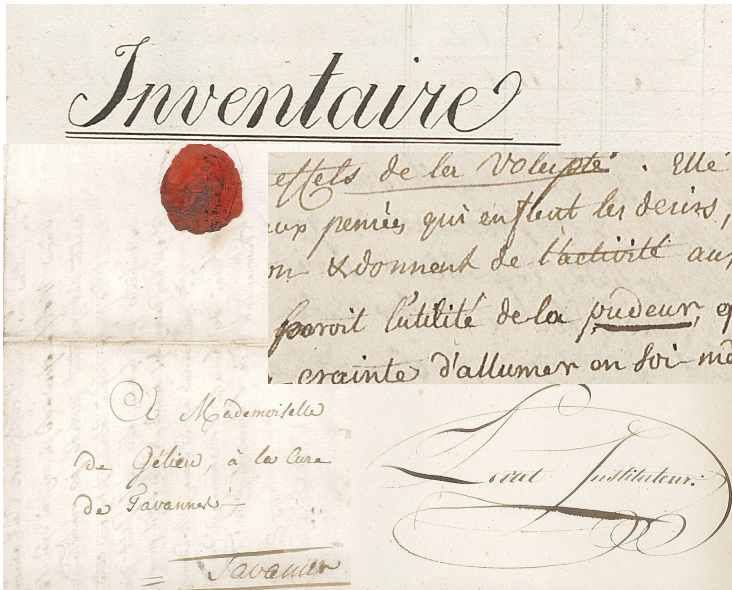 Inventaire
effets de la Volupté. Elle
aux pensées qui enflent les desirs,
on & donnent de l'activité aux
paroit l'utilité de la pudeur,
crainte d'allumer en soi-mê
A Mademoiselle
de Gélieu, à la Cure
de Tavannes
Tavannes
Instituteur.